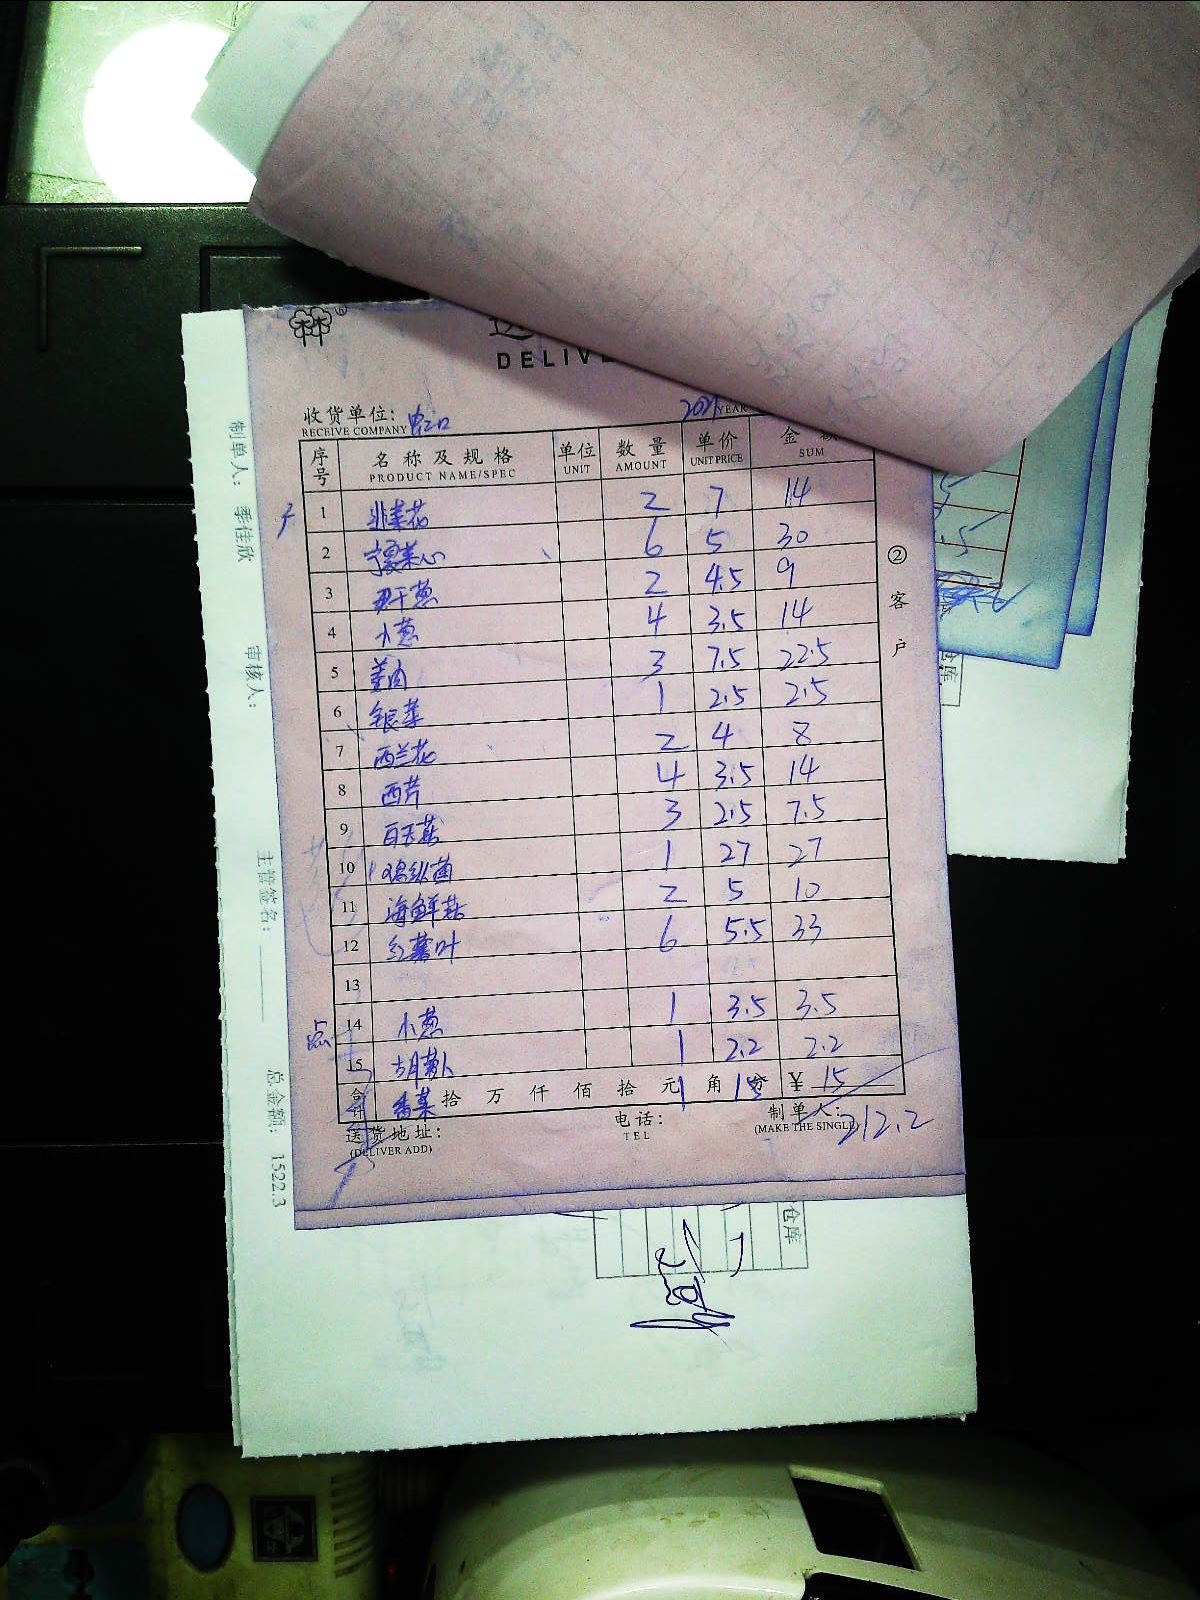 林®
DELIVE
收货单位: 虹口
RECEIVE COMPANY
2021 YEAR
序号 名称及规格 单位 数量 单价 金额
PRODUCT NAME/SPEC UNIT AMOUNT UNIT PRICE SUM
1 韭菜花 2 7 14
2 宁夏菜心 6 5 30
3 干葱 2 4.5 9
4 小葱 4 3.5 14
5 姜肉 3 7.5 22.5
6 银芽 1 2.5 2.5
7 西兰花 2 4 8
8 西芹 4 3.5 14
9 白玉菇 3 2.5 7.5
10 鸡纵菌 1 27 27
11 海鲜菇 2 5 10
12 红薯叶 6 5.5 33
13
14 小葱 1 3.5 3.5
15 胡萝卜 1 2.2 2.2
合计 香菜 拾 万 仟 佰 拾 元 1 角 15 分 ¥ 15
送货地址: 电话: 制单人: 212.2
(DELIVER ADD) TEL (MAKE THE SINGLE)
② 客户
点
制单人: 季佳欣
审核人:
主管签名:
总金额: 1522.3
仓库
仓库